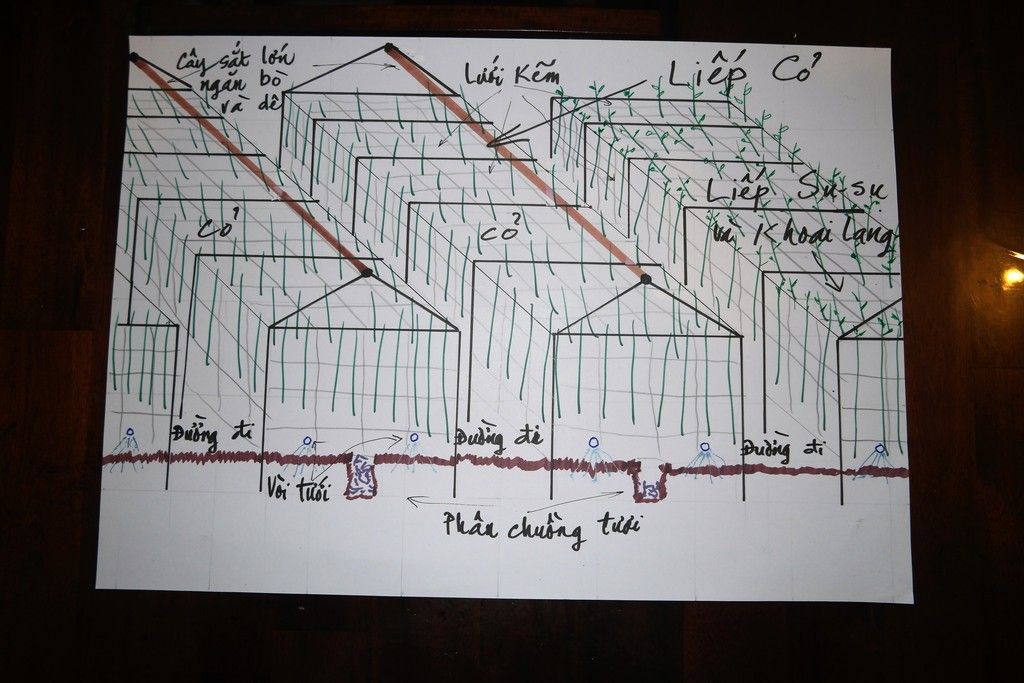 Cây sắt lớn
ngăn bò
và dê
Lưới Kẽm
Liếp Cỏ
Liếp Su-su
và Khoai lang
Cỏ
Cỏ
Đường đi
Đường đi
Đường đi
Vòi tưới
Phân chuồng tươi